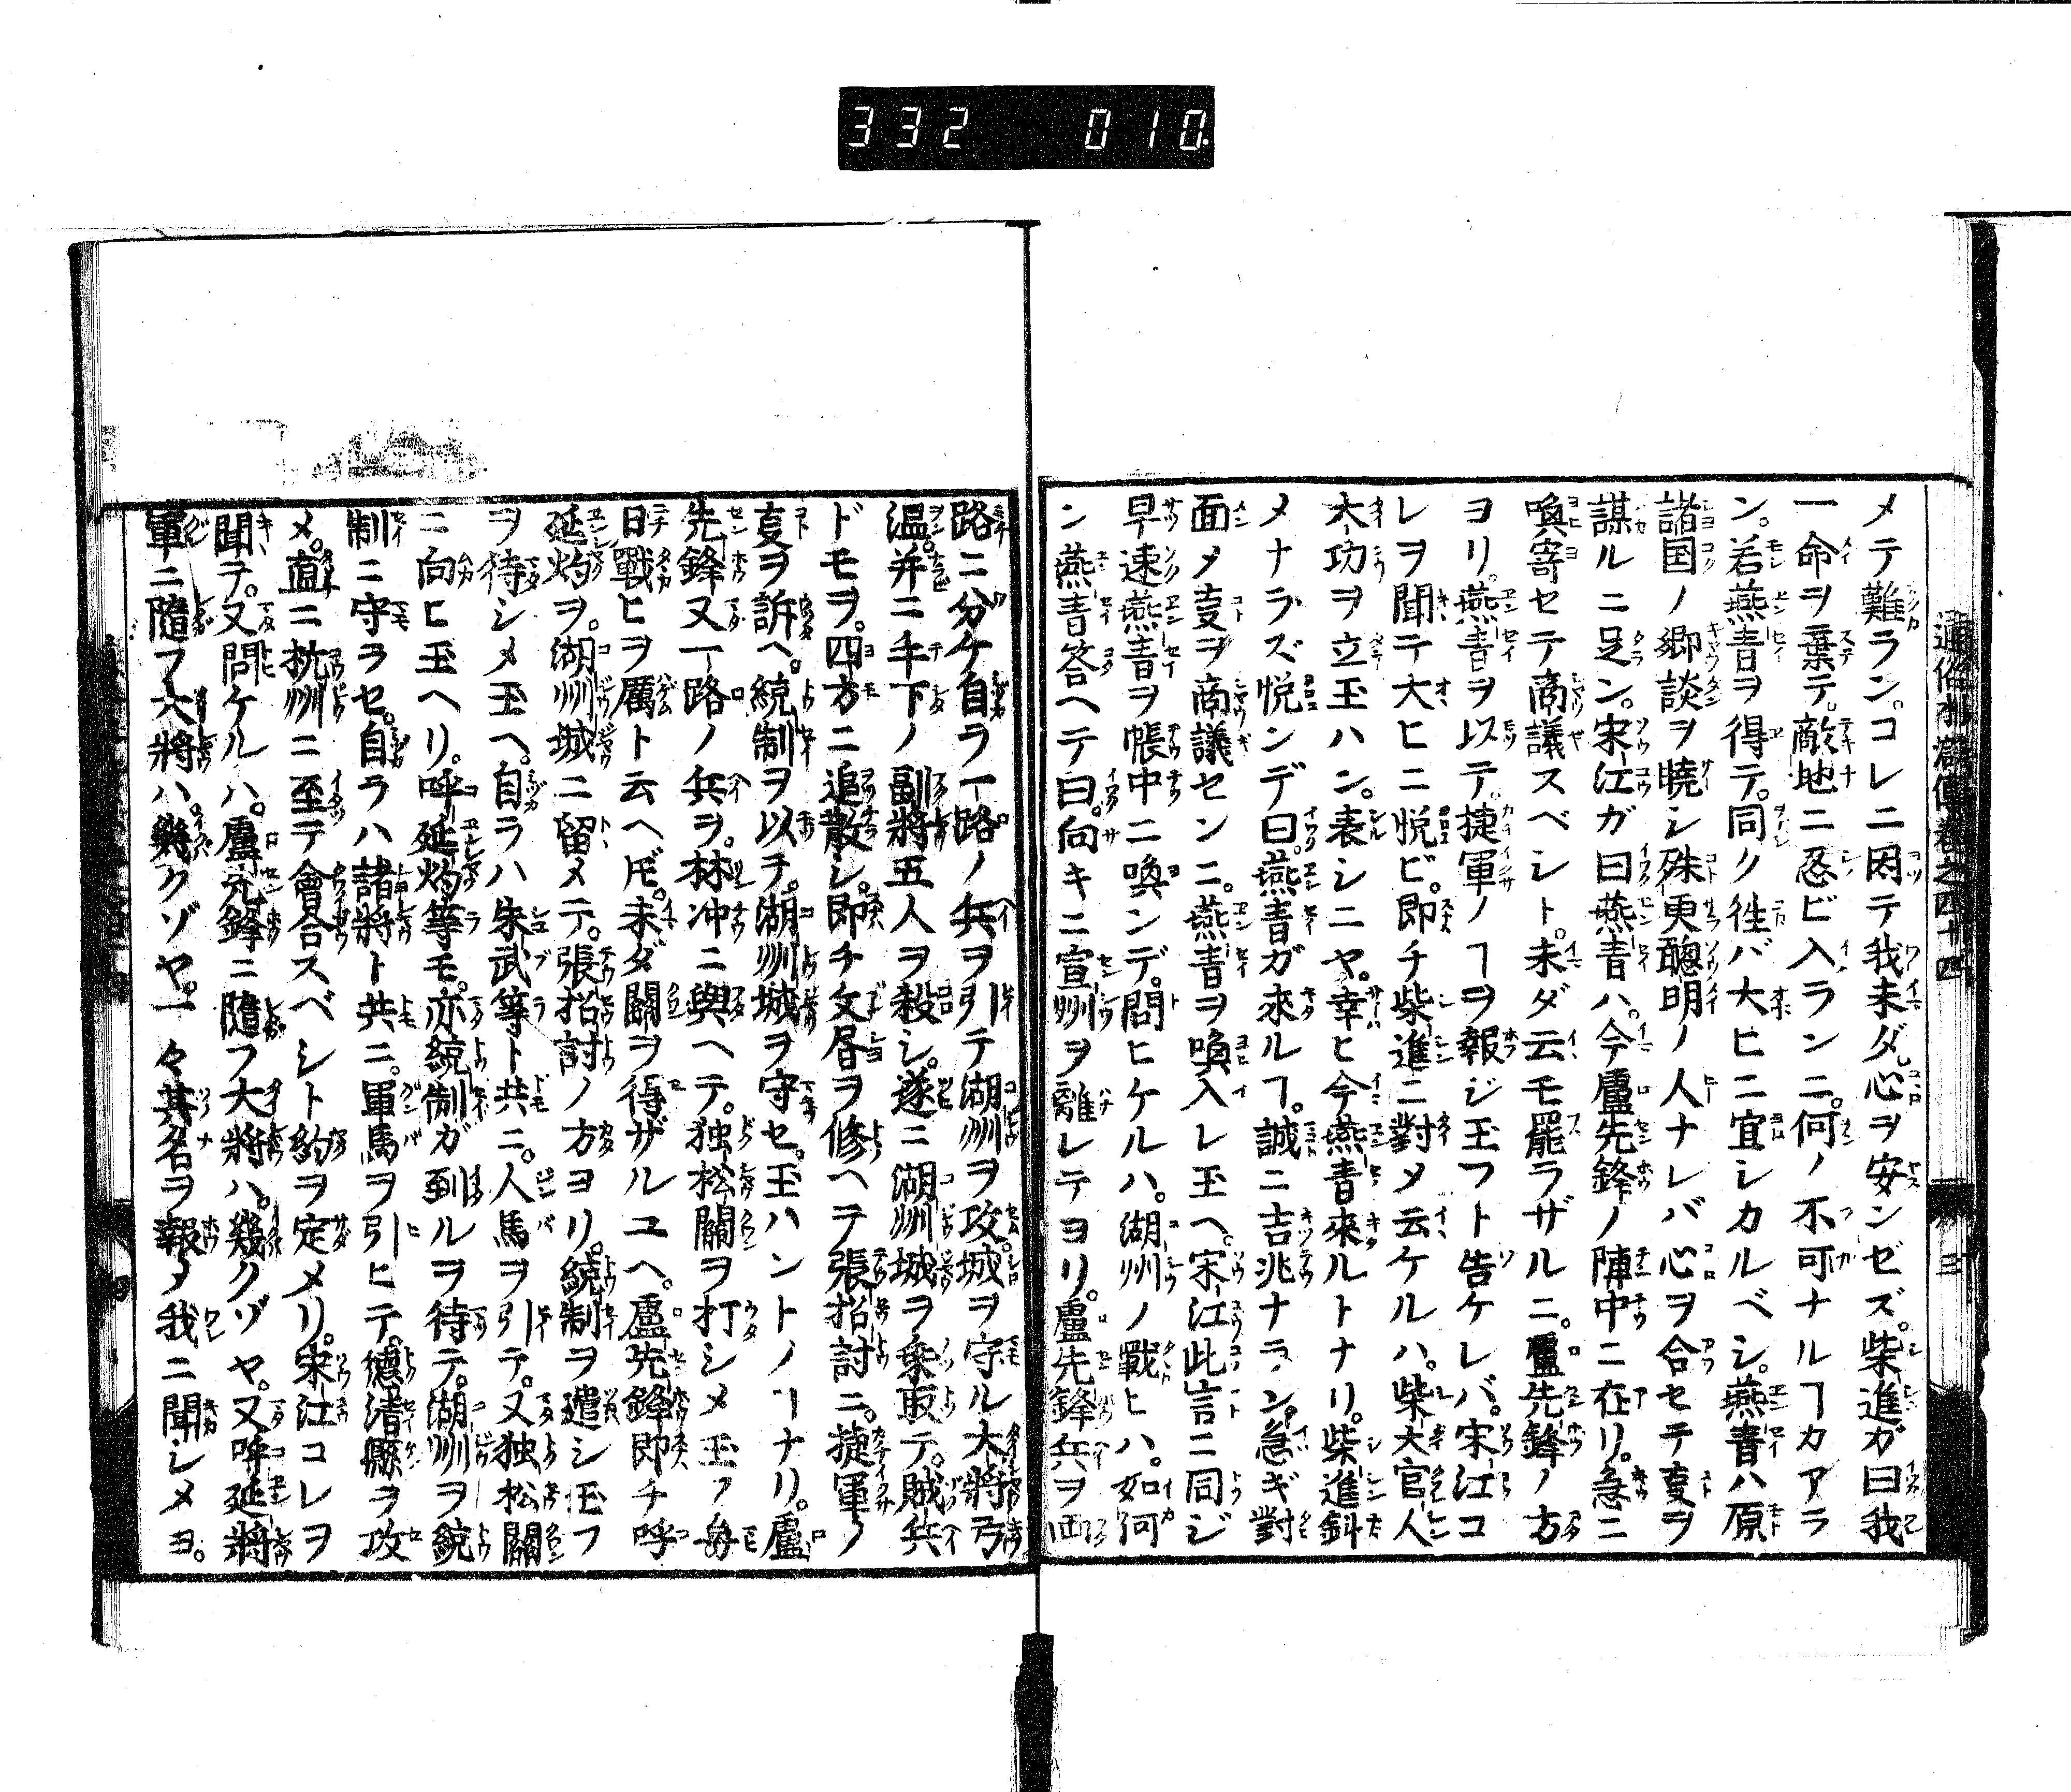 332 010.
通俗水滸傳卷之四十四 三
メテ難ラン。コレニ因テ我未ダ心ヲ安ンゼズ。柴進ガ曰我
一命ヲ棄テ。敵地ニ忍ビ入ランニ。何ノ不可ナルヿカアラ
ン。若燕青ヲ得テ。同ク徃バ大ヒニ宜シカルベシ。燕青ハ原
諸国ノ郷談ヲ曉シ殊更聰明ノ人ナレバ心ヲ合セテ叓ヲ
謀ルニ足ン。宋江ガ曰燕青ハ。今盧先鋒ノ陣中ニ在リ。急ニ
喚寄セテ商議スベシト。未ダ云モ罷ラザルニ。盧先鋒ノ方
ヨリ。燕青ヲ以テ。捷軍ノヿヲ報ジ玉フト告ケレバ。宋江コ
レヲ聞テ大ヒニ悦ビ。即チ柴進ニ對メ云ケルハ。柴大官人
大功ヲ立玉ハン。表シニヤ。幸ヒ今燕青來ルトナリ。柴進斜
メナラズ悦ンデ曰。燕青ガ來ルヿ。誠ニ吉兆ナラン。急ギ對
面メ叓ヲ商議センニ。燕青ヲ喚入レ玉ヘ。宋江此言ニ同ジ
早速燕青ヲ帳中ニ喚ンデ。問ヒケルハ。湖州ノ戰ヒハ。如何
ン燕青答ヘテ曰。向キニ宣州ヲ離レテヨリ。盧先鋒兵ヲ両
路ニ分ケ自ラ一路ノ兵ヲ引テ湖州ヲ攻。城ヲ守ル大將弓
温。并ニ手下ノ副將五人ヲ殺シ。遂ニ湖州城ヲ乗取テ。賊兵
ドモヲ。四方ニ追散シ。即チ文書ヲ修ヘテ張招討ニ。捷軍ノ
叓ヲ訴ヘ。統制ヲ以テ。湖州城ヲ守セ。玉ハントノヿナリ。盧
先鋒又一路ノ兵ヲ。林冲ニ與ヘテ。独松關ヲ打シメ玉フ毎
日戰ヒヲ厲ト云ヘ𪜈。未ダ關ヲ得ザルユヘ。盧先鋒即チ呼
延灼ヲ。湖州城ニ留メテ。張招討ノ方ヨリ。統制ヲ遣シ玉フ
ヲ待シメ玉ヘ。自ラハ朱武等ト共ニ。人馬ヲ引テ。又独松關
ニ向ヒ玉ヘリ。呼延灼等モ。亦統制ガ到ルヲ待テ。湖州ヲ統
制ニ守ラセ。自ラハ諸將ト共ニ。軍馬ヲ引ヒテ。德清縣ヲ攻
メ。直ニ杭州ニ至テ會合スベシト約ヲ定メリ。宋江コレヲ
聞テ。又問ケルハ。盧先鋒ニ隨フ大將ハ。幾クゾヤ。又呼延將
軍ニ隨フ大將ハ。幾クゾヤ。一々其名ヲ報メ我ニ聞シメヨ。